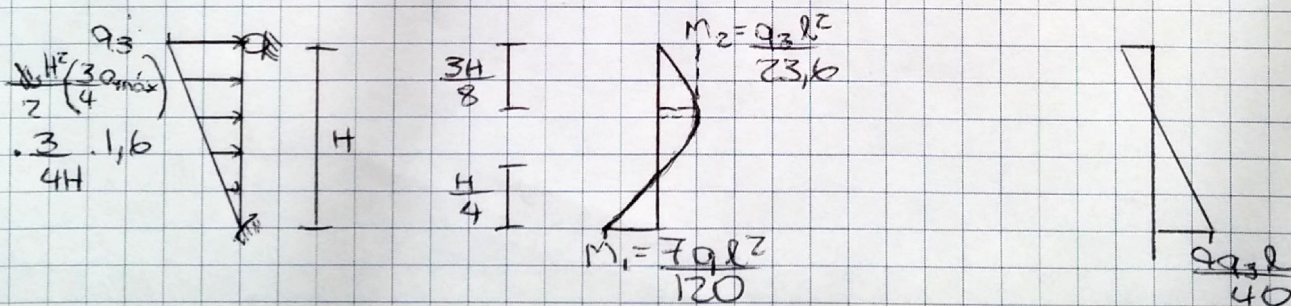 q3
H²/2 (3/4 qmáx)
· 3/4H · 1,6
H
3H/8
H/4
M2 = q3 l²/23,6
M1 = 7 q l²/120
9q3 l/40